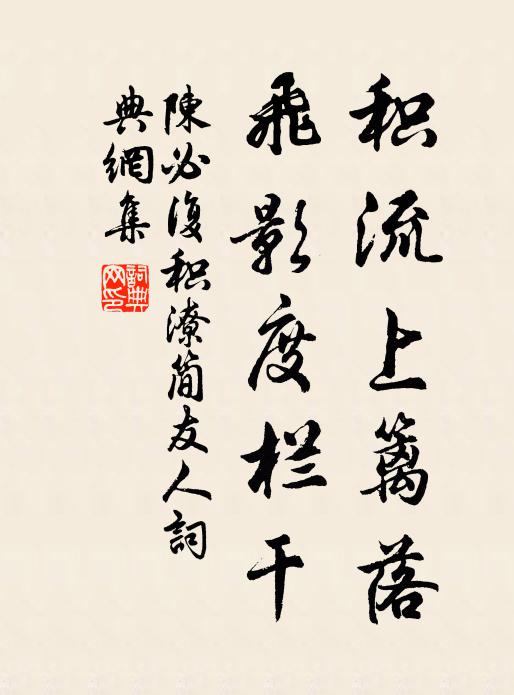 积流上篱落
飛影度栏干
陳必復积潦简友人詞
典網集
詞典网印